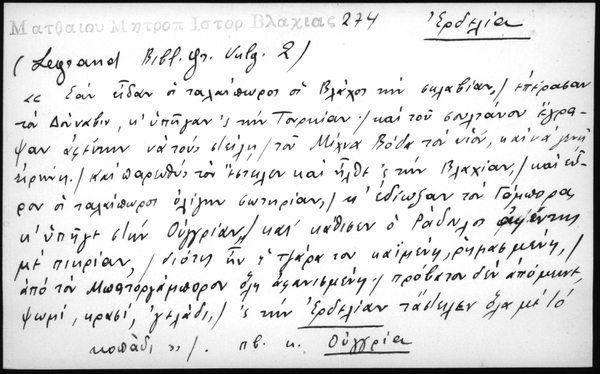 Ματθαιου Μητροπ Ιστορ Βλαχιας 274 Ἐρδελία
(Legrand Bibl. gr. Vulg. 2)
« Σὰν εἶδαν οἱ ταλαίπωροι οἱ Βλάχοι τὴν σκλαβίαν,/ ἐπέρασαν
τὸν Δούναβιν, κ' ὑπῆγαν 'ς τὴν Τουρκίαν·/ καὶ τοῦ σουλτάνου ἔγρα-
ψαν ἀφέντην νὰ τοὺς στείλῃ/ τοῦ Μίχνα Βόδα τὸν υἱόν, καὶ νὰ γενῇ
εἰρήνη./ Καὶ παρευθὺς τὸν ἔστειλεν καὶ ἦλθε 'ς τὴν Βλαχίαν,/ καὶ εὗ-
ρον οἱ ταλαίπωροι ὀλίγην σωτηρίαν,/ κ' ἐδίωξαν τὸν Γάμπορα,
κ' ὑπῆγε στὴν Οὐγγρίαν,/ καὶ κάθισεν ὁ Ράδουλος ἀφέντης
μὲ πικρίαν,/ διότις ἦν ἡ τζάρα του καϊμένη, ρημασμένη,/
ἀπὸ τὸν Μπατοργάμπορον ὅλη ἀφανισμένη·/ πρόβατον δὲν ἀπόμεινε,
ψωμί, κρασί, 'γελάδι,/ 'ς τὴν Ἐρδελίαν τἄστειλεν ὅλα μὲ τὸ
κοπάδι »/. πβ. κ. Οὐγγρία